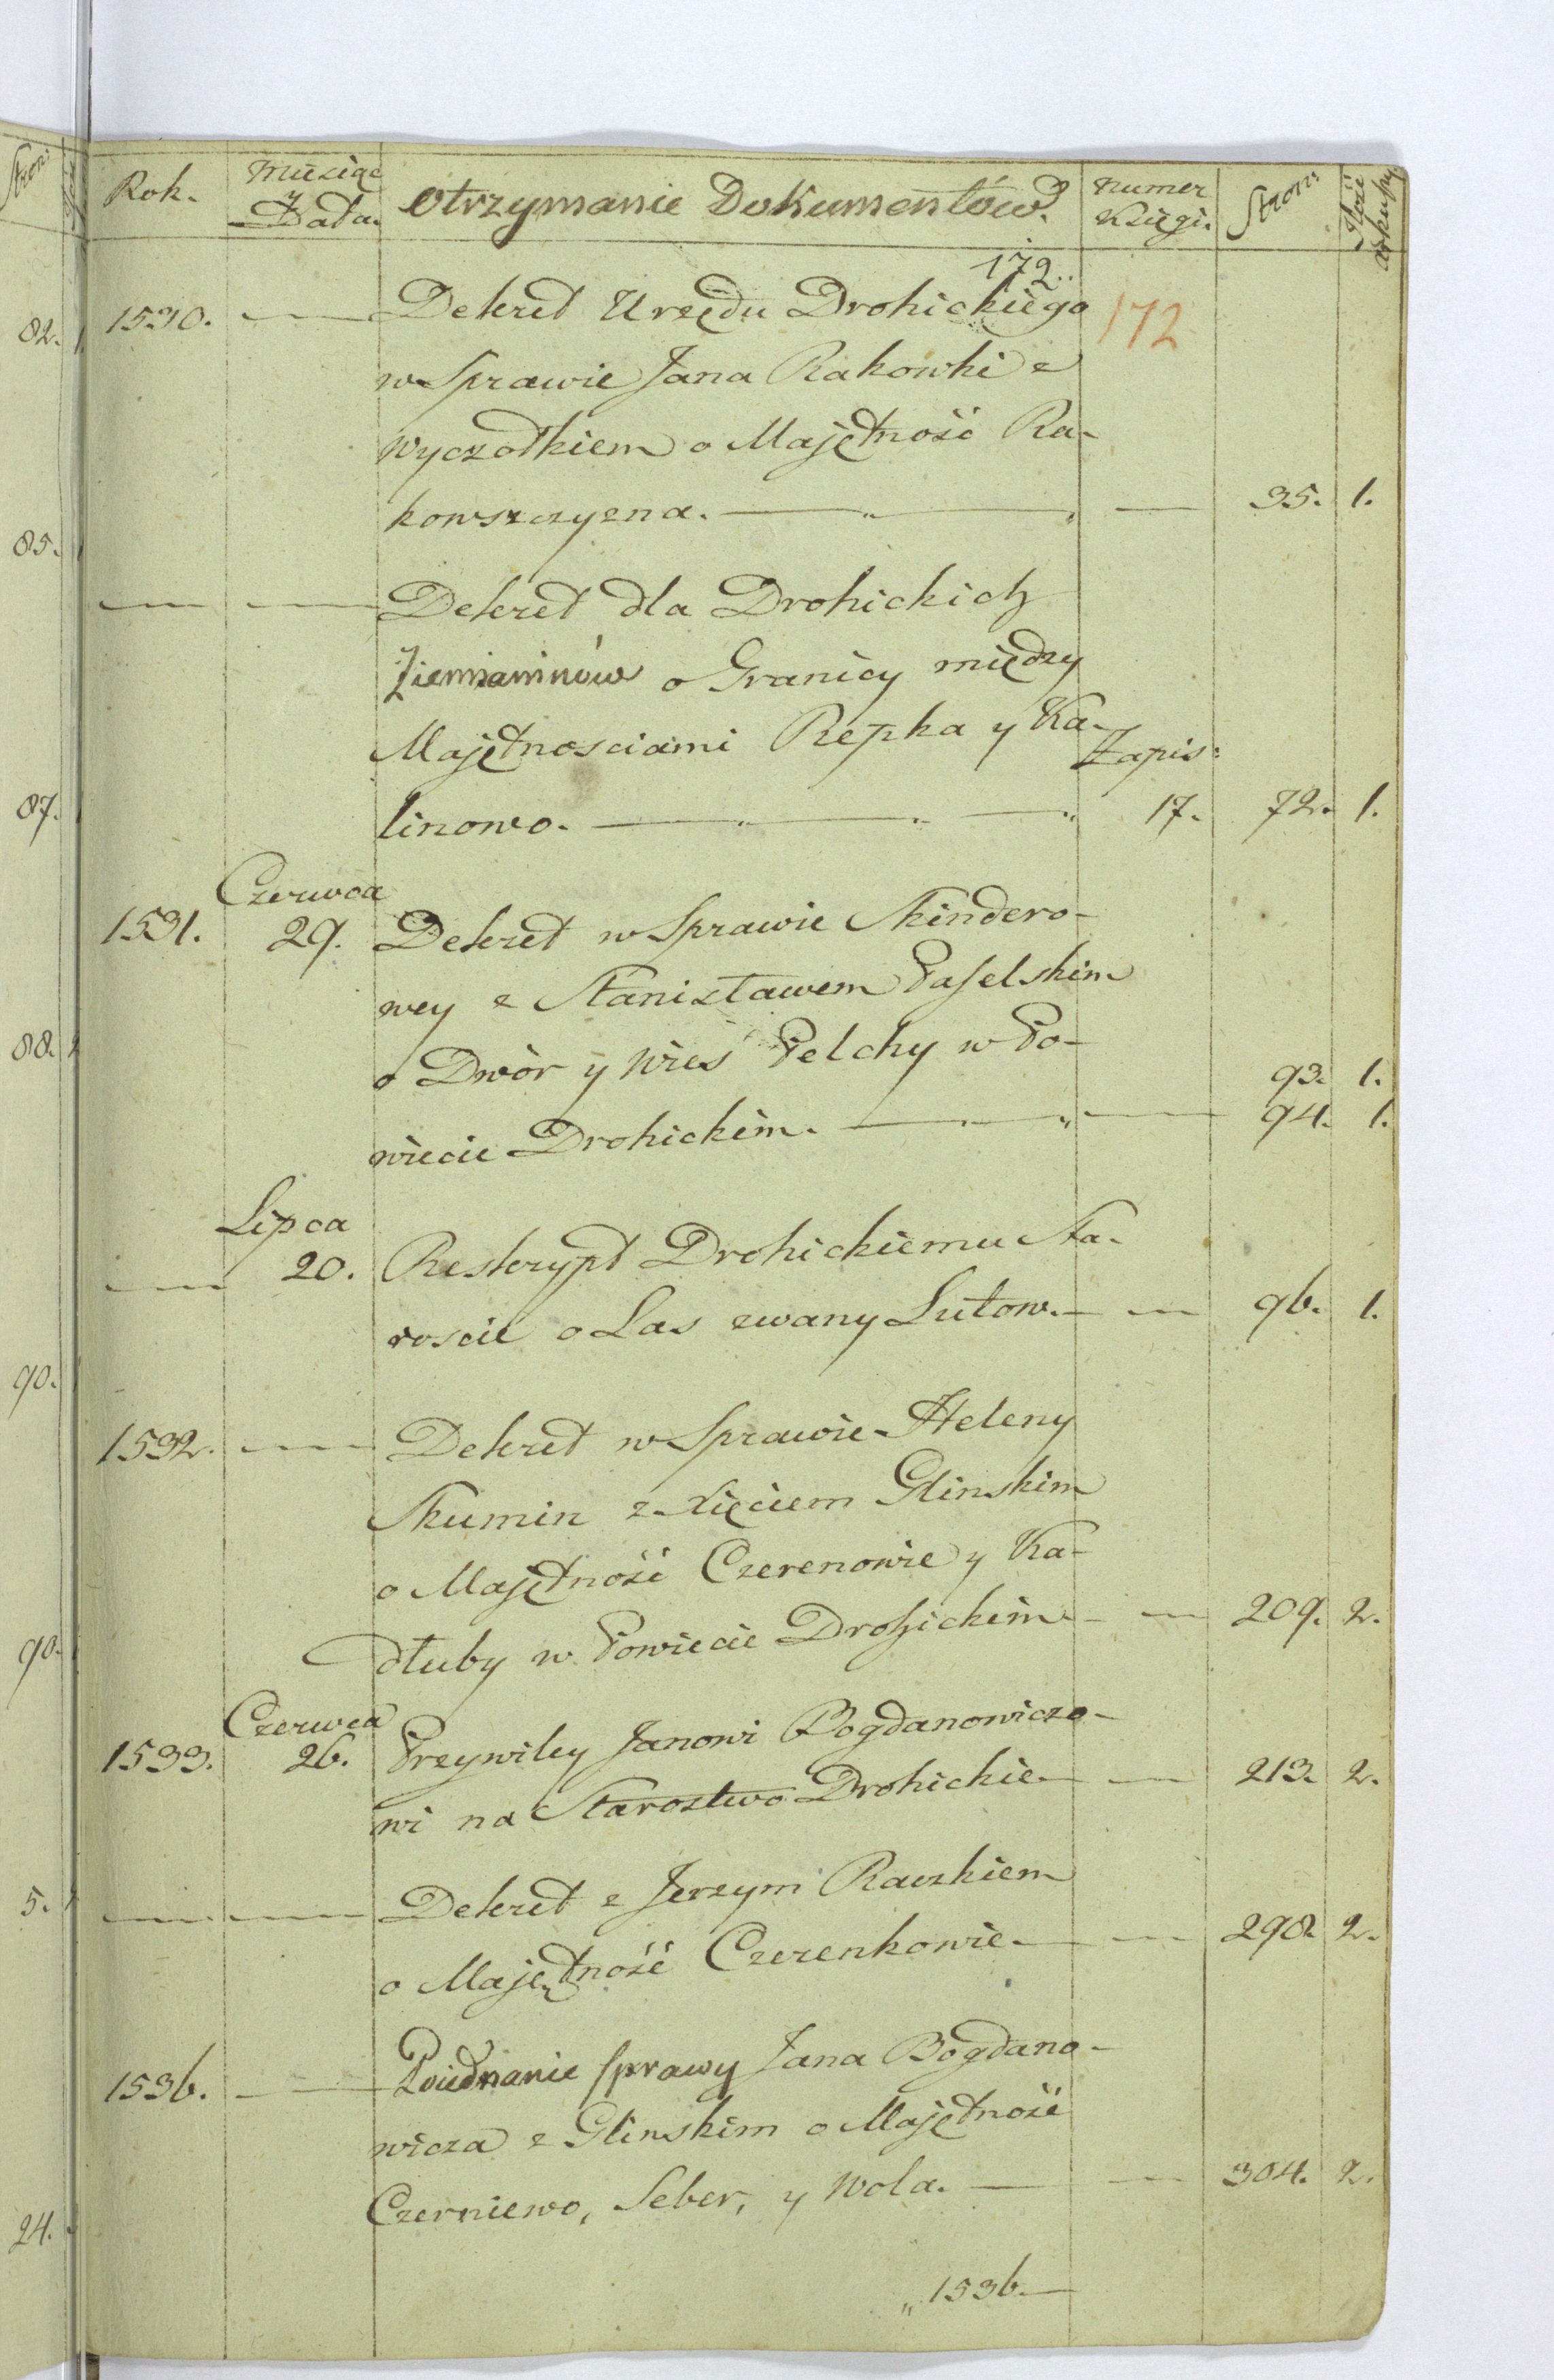 Stron:
Rok.
Miesiąc
y
Data.
Otrzymanie Dokumentów.
Numer
Księgi.
Stron:
Ilość
arkuszy
172..
172
82.
1530. — Dekret Urzędu Drohickiego
w Sprawie Jana Rakowki z
Wyczołkiem o Majętność Ra-
kowszczyzna. — — 35. 1.
85.
— — Dekret dla Drohickich
Ziemianinów o Granicy między
Majętnosciami Repka y Ka-
Zapis:
87.
linowo. — 17. 72. 1.
Czerwca
1531. 29. Dekret w Sprawie Skindero-
wey z Stanisławem Paselskim
88.
o Dwór y Wieś Pelchy w Po-
93. 1.
wiecie Drohickim. — — 94. 1.
Lipca
— 20. Reskrypt Drohickiemu Sta-
roscie o Las zwany Lutow. — — 96. 1.
90.
1532. — Dekret w Sprawie Heleny
Skumin z Xięciem Glinskim
o Majętność Czerenowie y Ka-
90.
dłuby w Powiecie Drohickim — — 209. 2.
Czerwca
1533. 26. Przywiley Janowi Bogdanowiczo-
wi na Starostwo Drohickie — — 213. 2.
5.
— — Dekret z Jerzym Raczkiem
o Majętność Czerenkowie — — 298. 2.
1536. — Poiednanie sprawy Jana Bogdano-
wicza z Glinskim o Majętność
24.
Czerniewo, Seber, y Wola. — — 304. 2.
„1536. —